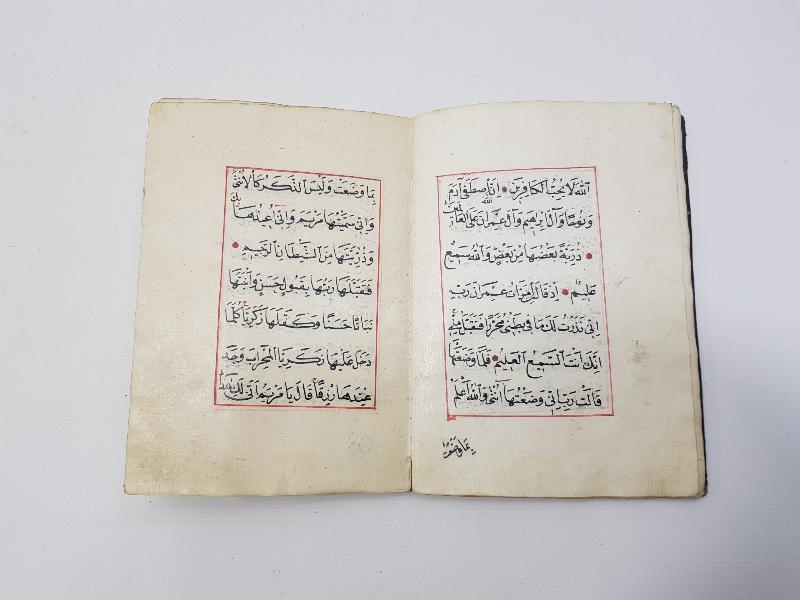 الله لا يحب الكافرين • ان الله اصطفى ادم
ونوحا وال ابرهيم وال عمران على العالمين
• ذرية بعضها من بعض والله سميع
عليم • اذ قالت امرات عمران رب
اني نذرت لك ما في بطني محررا فتقبل مني
انك انت السميع العليم • فلما وضعتها
قالت رب اني وضعتها انثى والله اعلم
بما وضعت
بما وضعت وليس الذكر كالانثى
واني سميتها مريم واني اعيذها بك
وذريتها من الشيطان الرجيم •
فتقبلها ربها بقبول حسن وانبتها
نباتا حسنا وكفلها زكريا كلما
دخل عليها زكريا المحراب وجد
عندها رزقا قال يا مريم انى لك هذا